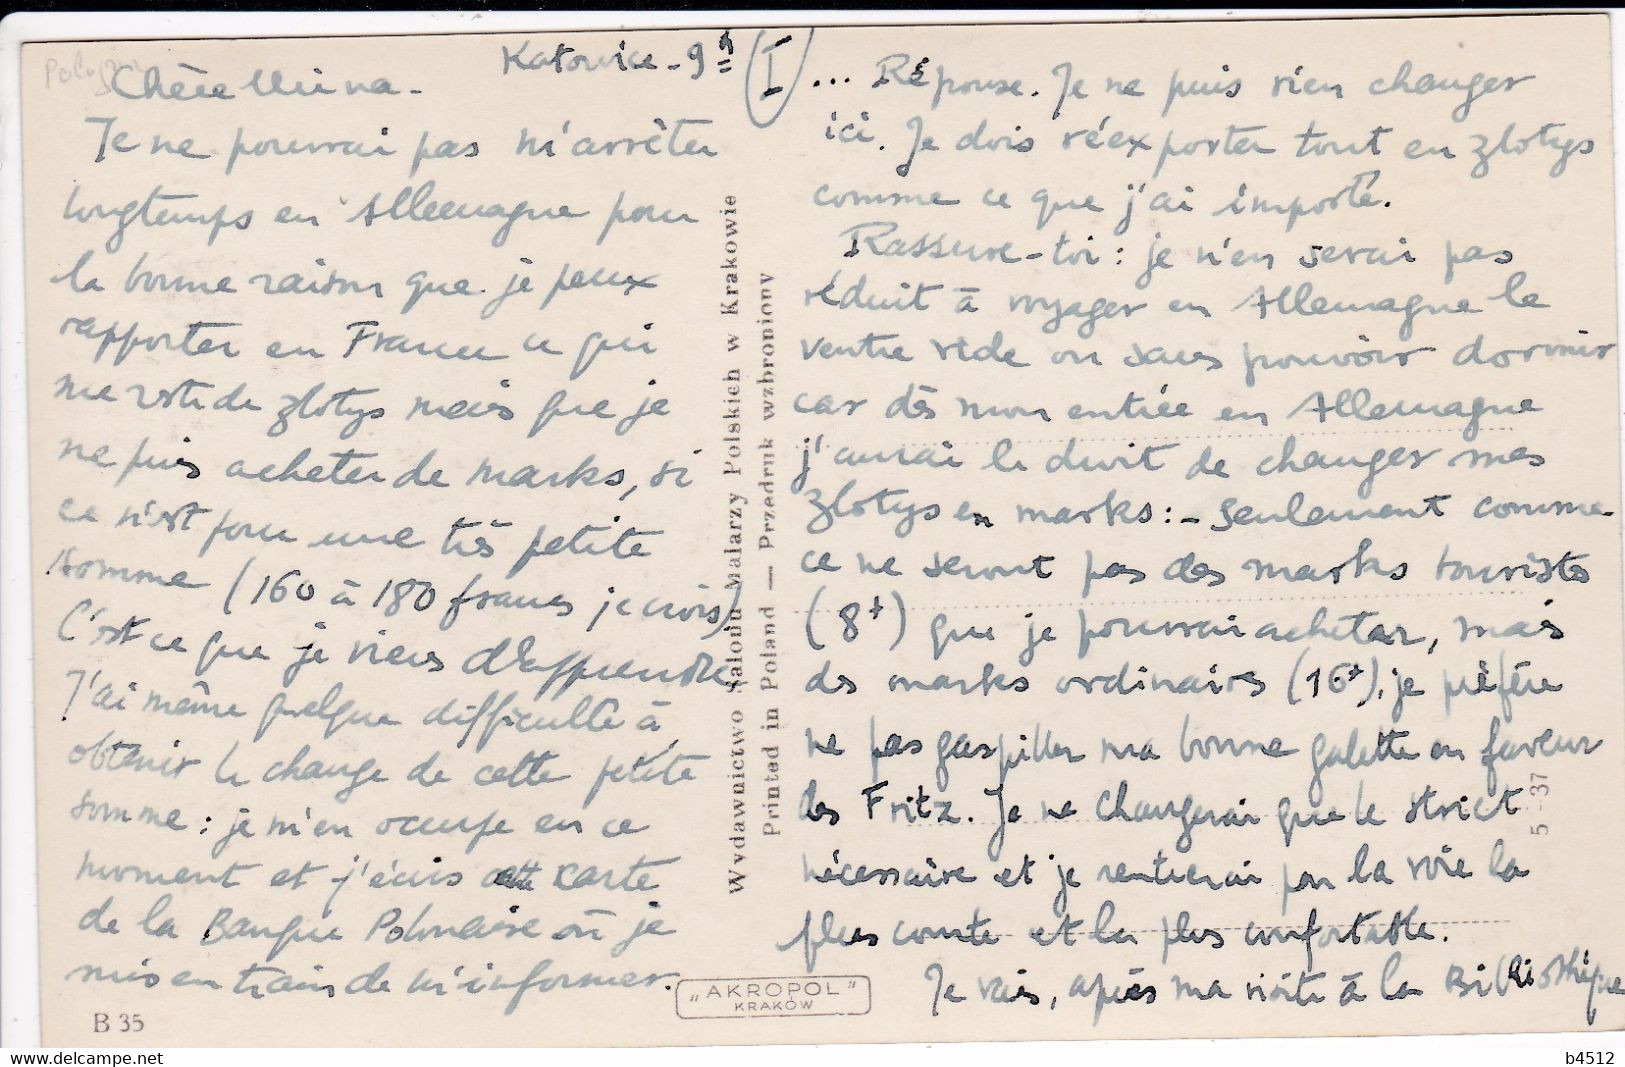 Katowice - 9h
I
Chère Mina -
Je ne pourrai pas m'arrêter
longtemps en Allemagne pour
la bonne raison que je peux
rapporter en France ce qui
me reste de zlotys mais que je
ne puis acheter de marks, si
ce n'est pour une très petite
somme (160 à 180 francs je crois)
C'est ce que je viens d'apprendre
J'ai même quelque difficulté à
obtenir le change de cette petite
somme : je m'en occupe en ce
moment et j'écris cette carte
de la Banque Polonaise où je
suis en train de m'informer.
B 35
Wydawnictwo Salonu Malarzy Polskich w Krakowie
Printed in Poland — Przedruk wzbroniony
"AKROPOL"
KRAKÓW
... Réponse. Je ne puis rien changer
ici. Je dois réexporter tout en zlotys
comme ce que j'ai importé.
Rassure-toi : je n'en serai pas
réduit à voyager en Allemagne le
ventre vide ou sans pouvoir dormir
car dès mon entrée en Allemagne
j'aurai le droit de changer mes
zlotys en marks : - seulement comme
ce ne seront pas des marks touristes
(8f) que je pourrai acheter, mais
des marks ordinaires (16f), je préfère
ne pas gaspiller ma bonne galette en faveur
des Fritz. Je ne changerai que le strict
nécessaire et je rentrerai par la voie la
plus courte et la plus confortable.
Je vais, après ma visite à la Bibliothèque
5-37
b4512
www.delcampe.net